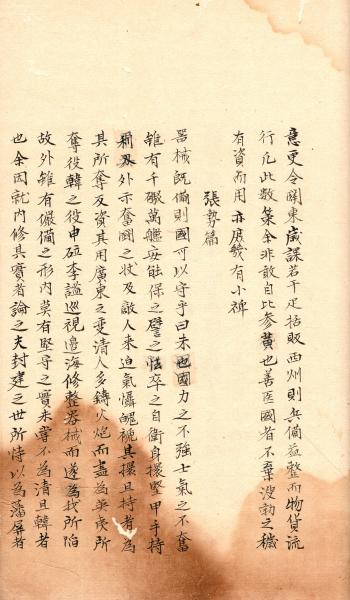 意更令關東歲課若干足括販西州則兵備益整而物貨流
行凡此數策余非敢自比參黃也善医國者不棄溲勃之穢
有資而用亦庶幾有小裨
張勢篇
器械既備則國可以守乎曰未也國力之不強士氣之不奮
雖有千礟萬艦安能保之譬之怯卒之自衞身擐堅甲手持
利刃外示奮鬪之状及敵人来迫氣懾魄褫其擐且持者為
其所奪及資其用廣東之変清人多鋳火炮而盡為英虜所
奪役韓之役申砬李鎰巡視邉海修整器械而遂為我所陥
故外雖有儼備之形内莫有堅守之實未甞不為清且韓者
也余因就内修其實者論之夫封建之世所恃以為藩屏者